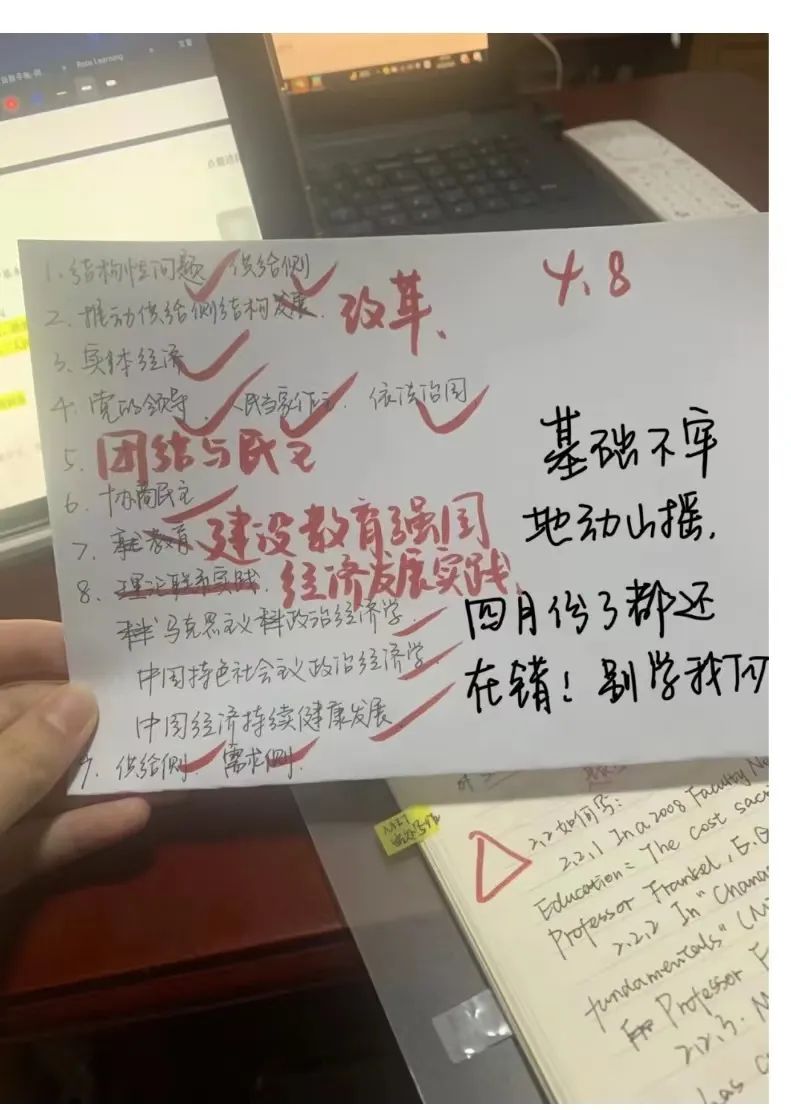 Rote Learning
1. 结构性问题 供给侧
4.8
2. 推动供给侧结构发展. 改革、
3. 实体经济
4. 党的领导、人民当家作主、依法治国
5. 团结与民主
6. 协商民主
7. 教育、建设教育强国
8. 理论联系实践. 经济发展实践.
马克思主义政治经济学.
中国特色社会主义政治经济学.
中国经济持续健康发展.
9. 供给侧、需求侧.
基础不牢
地动山摇.
四月份了都还
在错！别学我
2.2 如何写:
2.2.1 In a 2008 Faculty Ne
Education: The cost sac
Professor Frankel, E.G
2.2.2 In "Chang
fundamentals" (M
Professor F
2.2.3. M
has c